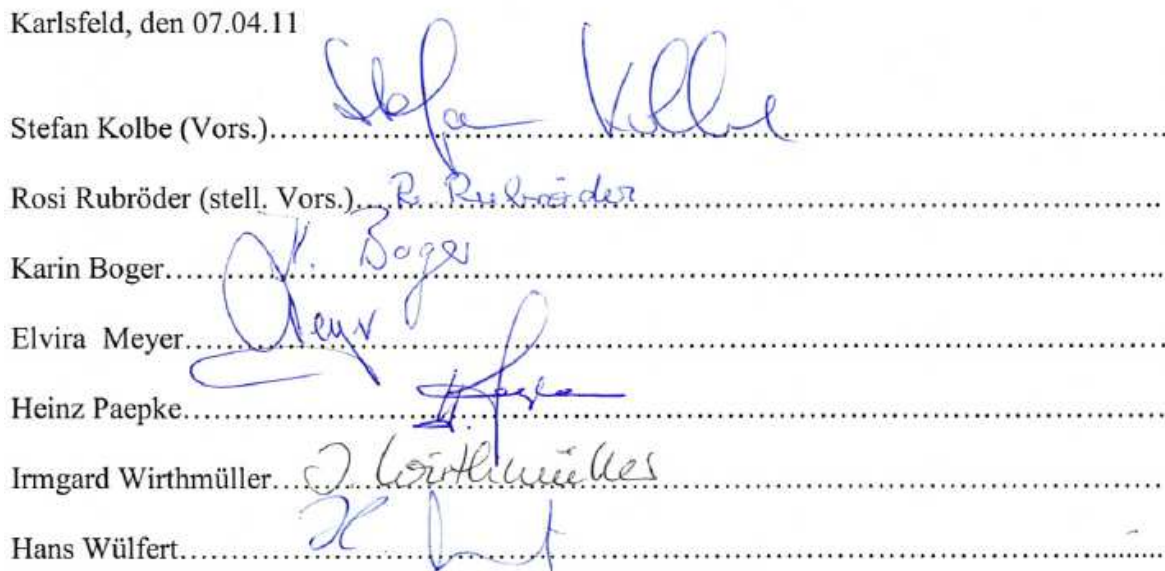 Karlsfeld, den 07.04.11
Stefan Kolbe (Vors.).......... Stefan Kolbe
Rosi Rubröder (stell. Vors.).......... R. Rubröder
Karin Boger.......... K. Boger
Elvira Meyer.......... Meyer
Heinz Paepke.......... H.
Irmgard Wirthmüller.......... I. Wirthmüller
Hans Wülfert.......... H